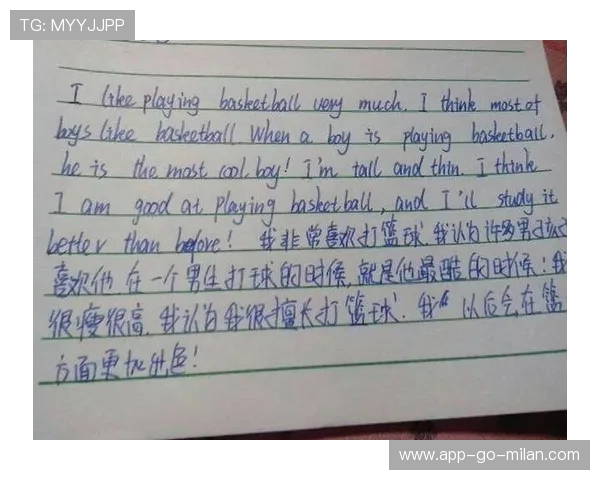 TG: MYYJJPP
I like playing basketball very much. I think most of
boys like basketball. When a boy is playing basketball.
he is the most cool boy! I'm tall and thin. I think
I am good at playing basketball, and I'll study it
better than before! 我非常喜欢打篮球.我认为许多男孩
喜欢他 在一个男生打球的时候,就是他最酷的时候!我
很瘦很高.我认为我很擅长打篮球.我 以后会在篮
方面更加出色!
www.app-go-milan.com